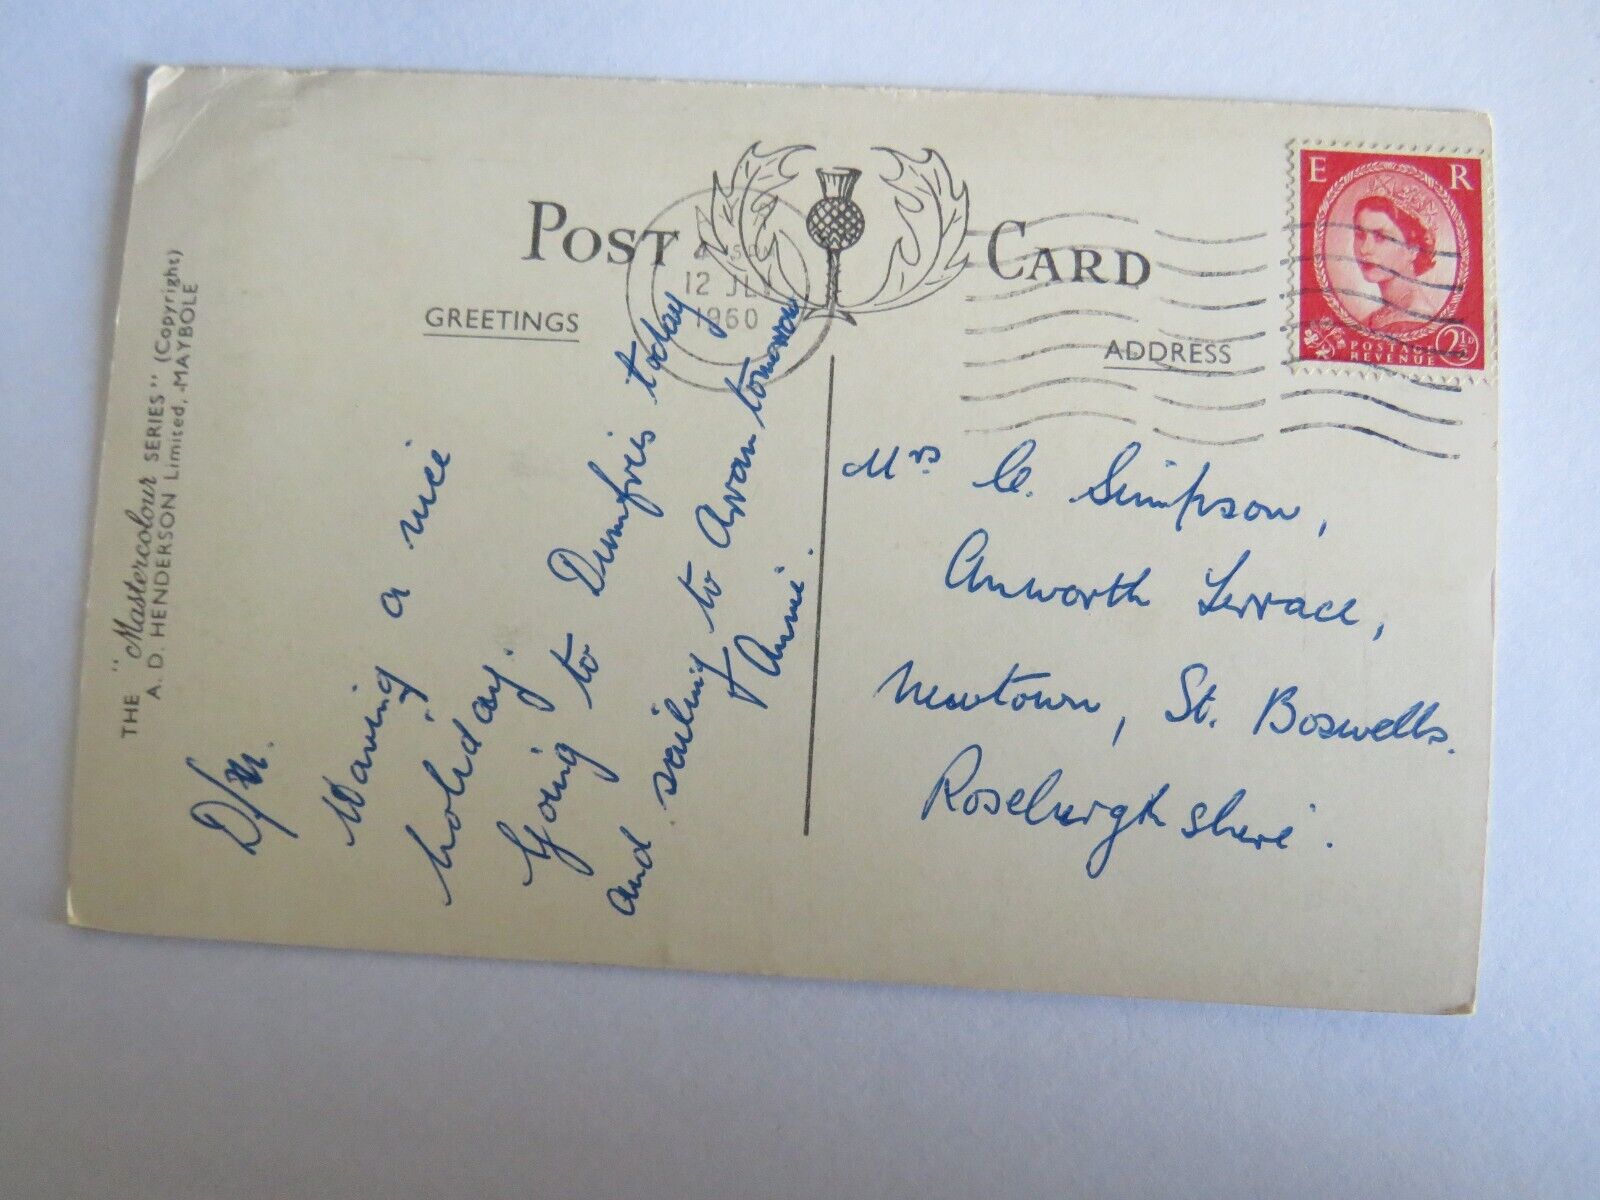 THE "Mastercolour SERIES" (Copyright)
A. D. HENDERSON Limited, MAYBOLE
POST CARD
GREETINGS
ADDRESS
12 JLY
1960
E R
POSTAGE
REVENUE
2½D
Having a nice
holiday.
Going to Dumfries today
and sailing to Arran tomorrow
Annie.
Mrs C. Simpson,
Anworth Terrace,
Newtown, St. Boswells.
Roxburghshire.